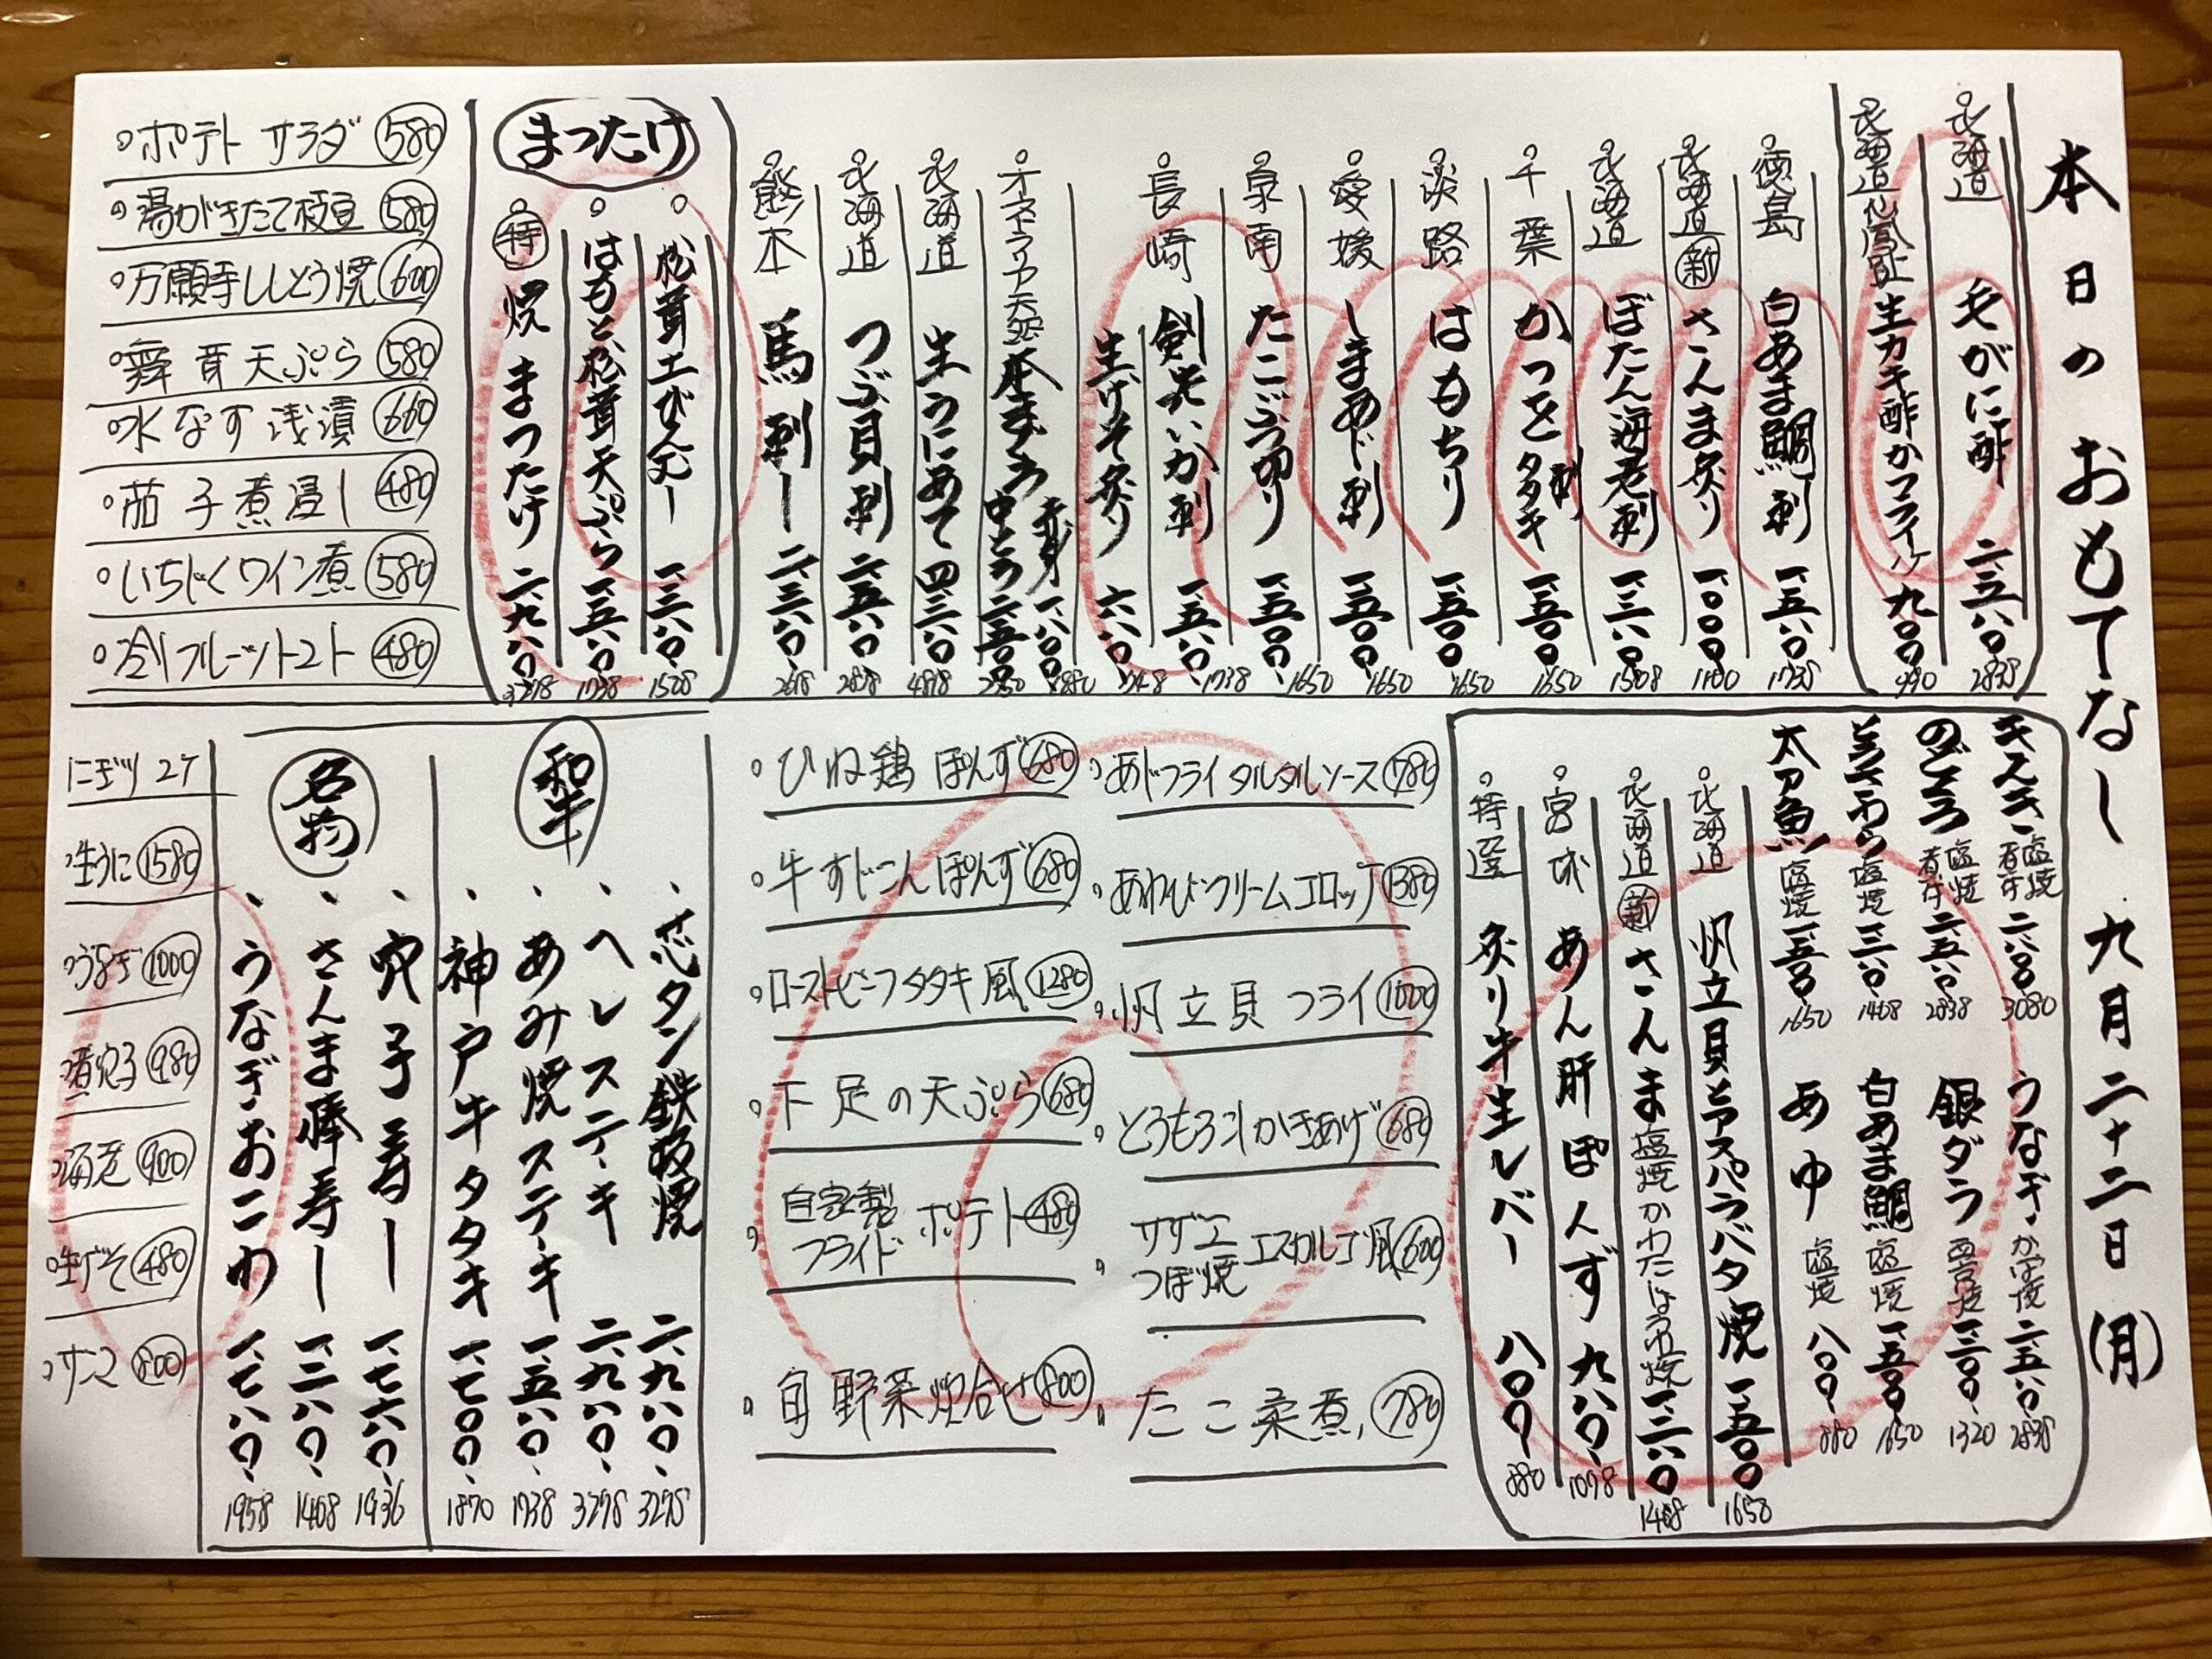 本日のおもてなし 九月二十二日(月)
北海道 毛がに酢 二、五八〇 2838
北海道仙鳳趾 生カキ酢かフライ 九〇〇 990
徳島 白あま鯛刺 一、五八〇 1738
北海道 新 さんま炙り 一、〇〇〇 1100
北海道 ぼたん海老刺 一、三八〇 1508
千葉 かつをタタキ 刺 一、五〇〇 1650
淡路 はもちり 一、五〇〇 1650
愛媛 しまあじ刺 一、五〇〇 1650
泉南 たこぶつ切り 一、五〇〇 1650
長崎 剣先いか刺 一、五八〇 1738
生げそ炙り 六八〇
天然本まぐろ 赤身 一、八〇〇
中とろ
北海道 生うにあて 四、三八〇 4818
北海道 つぶ貝刺 二、五八〇 2838
熊本 馬刺し 二、三八〇 2618
まつたけ
松茸土びんむし 一、三八〇 1508
はもと松茸天ぷら 一、五八〇 1738
特 焼まつたけ 二、九八〇 3278
ポテトサラダ 580
湯がきたて枝豆 580
万願寺ししとう焼 600
舞茸天ぷら 580
水なす浅漬 660
茄子煮浸し 480
いちじくワイン煮 580
冷しフルーツトマト 480
きんき 塩焼 煮付 二、八〇〇 3080
のどぐろ 塩焼 煮付 二、五八〇 2838
とろさわら 塩焼 1408
太刀魚 塩焼 一、五〇〇 1650
うなぎ かば焼 二、五八〇 2838
銀ダラ 西京焼 1320
白あま鯛 塩焼 一、五〇〇 1650
あゆ 塩焼 八〇〇 880
北海道 帆立貝とアスパラバタ焼 一、五〇〇 1650
北海道 新 さんま塩焼かわたしょうゆ焼 一、二八〇 1408
宮城 あん肝ぽんず 九八〇 1078
特選 炙り牛生レバー 八〇〇 880
あじフライタルタルソース 780
あわびクリームコロッケ 1380
帆立貝フライ 1000
とうもろこしかきあげ 680
サザエつぼ焼エスカルゴ風 600
たこ柔煮 780
ひね鶏ぽんず 680
牛すじこんぽんず 680
ローストビーフタタキ風 1280
下足の天ぷら 680
自家製フライドポテト 480
旬野菜炊合せ 800
和牛
芯タン鉄板焼 二、九八〇 3278
ヘレステーキ 二、九八〇 3278
あみ焼ステーキ 一、五八〇 1738
神戸牛タタキ 一、七〇〇 1870
名物
穴子寿し 一、七六〇 1936
さんま棒寿し 一、二八〇 1408
うなぎおこわ 一、七八〇 1958
にぎり2ケ
生うに 1580
うなぎ 1000
煮穴子 980
海老 900
生げそ 480